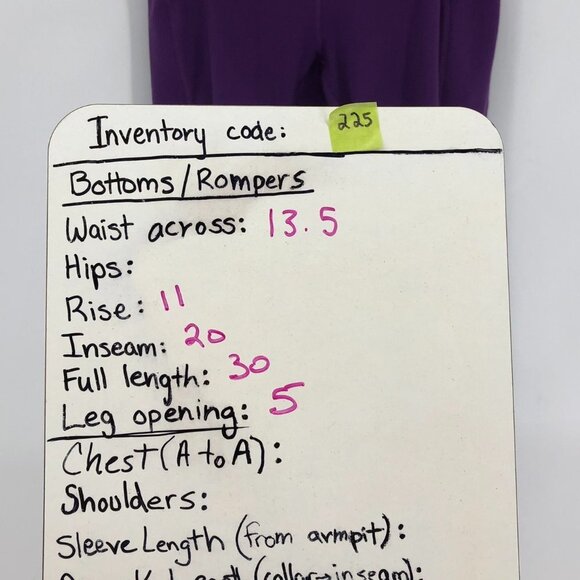 Inventory code: 225
Bottoms/Rompers
Waist across: 13.5
Hips:
Rise: 11
Inseam: 20
Full length: 30
Leg opening: 5
Chest (A to A):
Shoulders:
Sleeve Length (from armpit):
(collar→inseam):